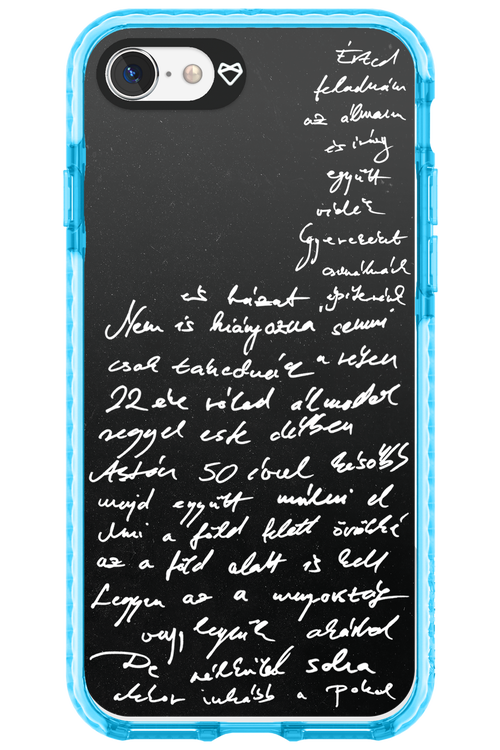 Érted
feladnám
az álmaim
és így
együtt
vidék
Gyerekeket
csinálnánk
és házat építenék
Nem is hiányozna semmi
csak takednék a réten
22 éve rólad álmodok
reggel este délben
Aztán 50 évvel később
majd együtt múlni el
Ami a föld felett örökké
az a föld alatt is kell
Legyen az a mennyország
vagy legyünk akárhol
De nélküled soha
akkor inkább a Pokol